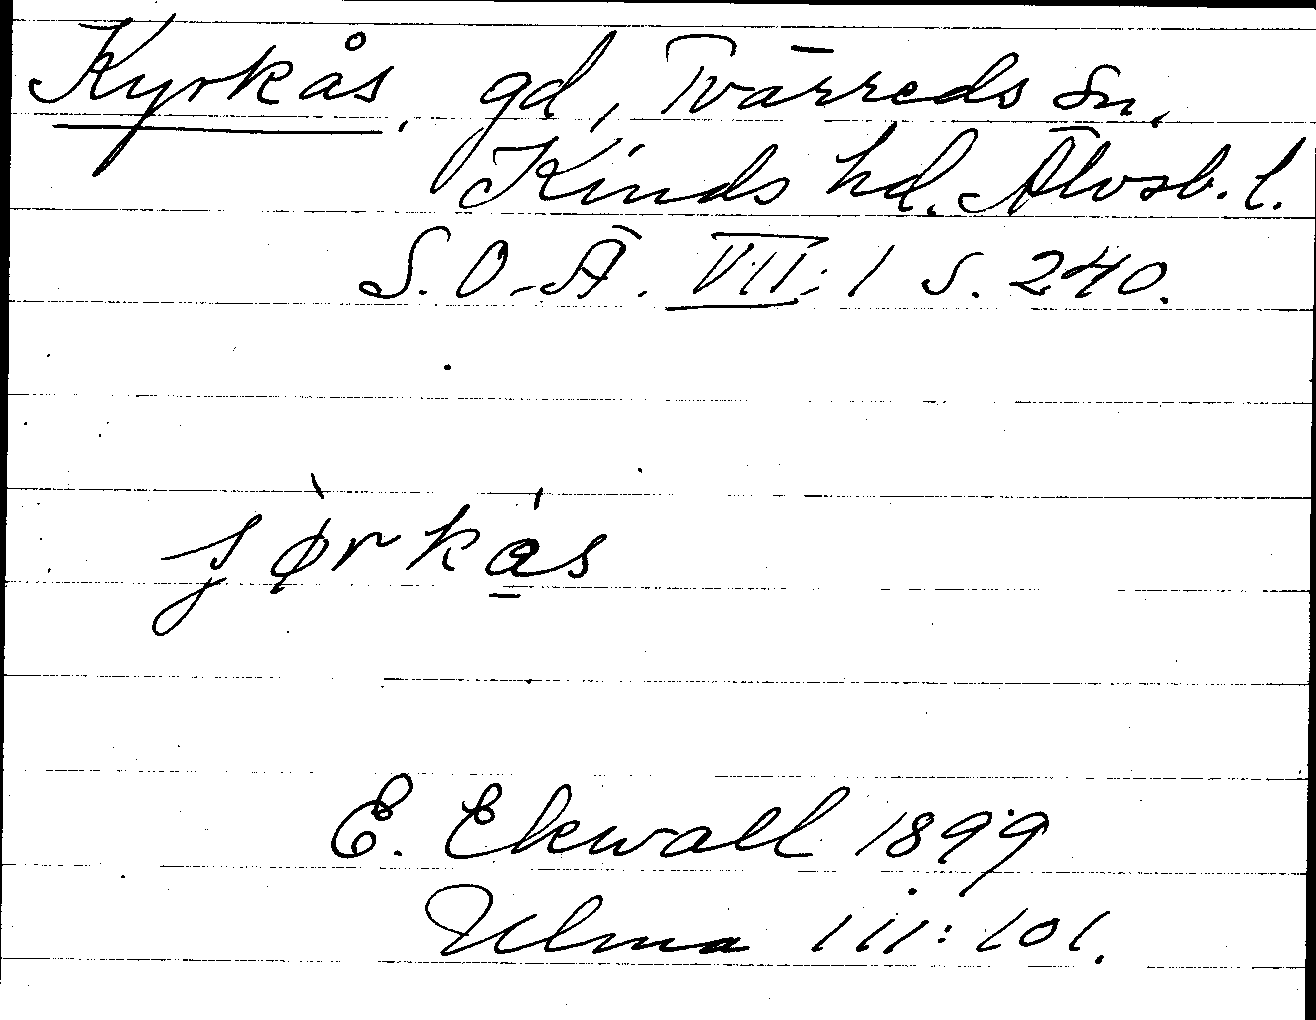 Kyrkås, gd, Tvärreds sn,
Kinds hd. Älvsb. l.
S.O-Ä. VII:1 s. 240.
ʃø̀rkás
E. Ekwall 1899
Ulma 111:101.